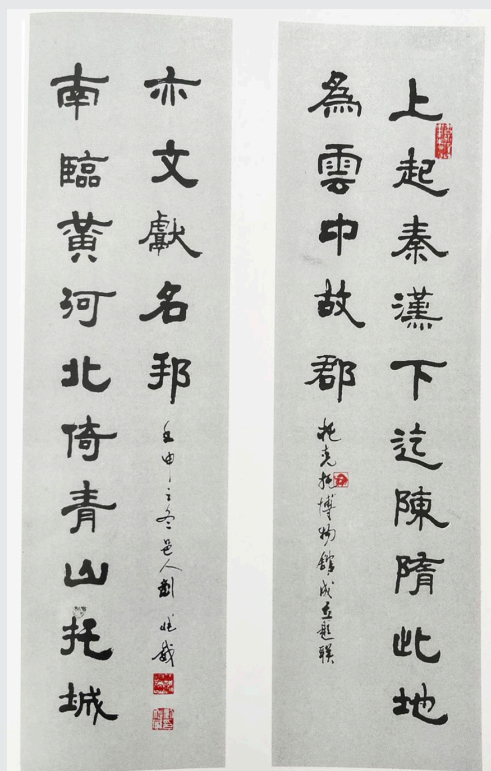 上起秦漢下迄陳隋此地
為雲中故郡
托克托博物館成立題联
南臨黃河北倚青山托城
亦文獻名邦
壬申之冬邑人劉